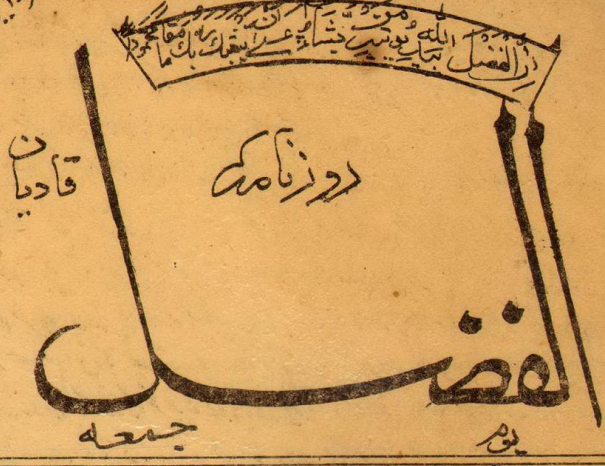 ان الفضل بید اللہ یوتیہ من یشاء عسیٰ ان یبعثک ربک مقاما محمودا
روزنامہ
قادیان
الفضل
یوم جمعہ